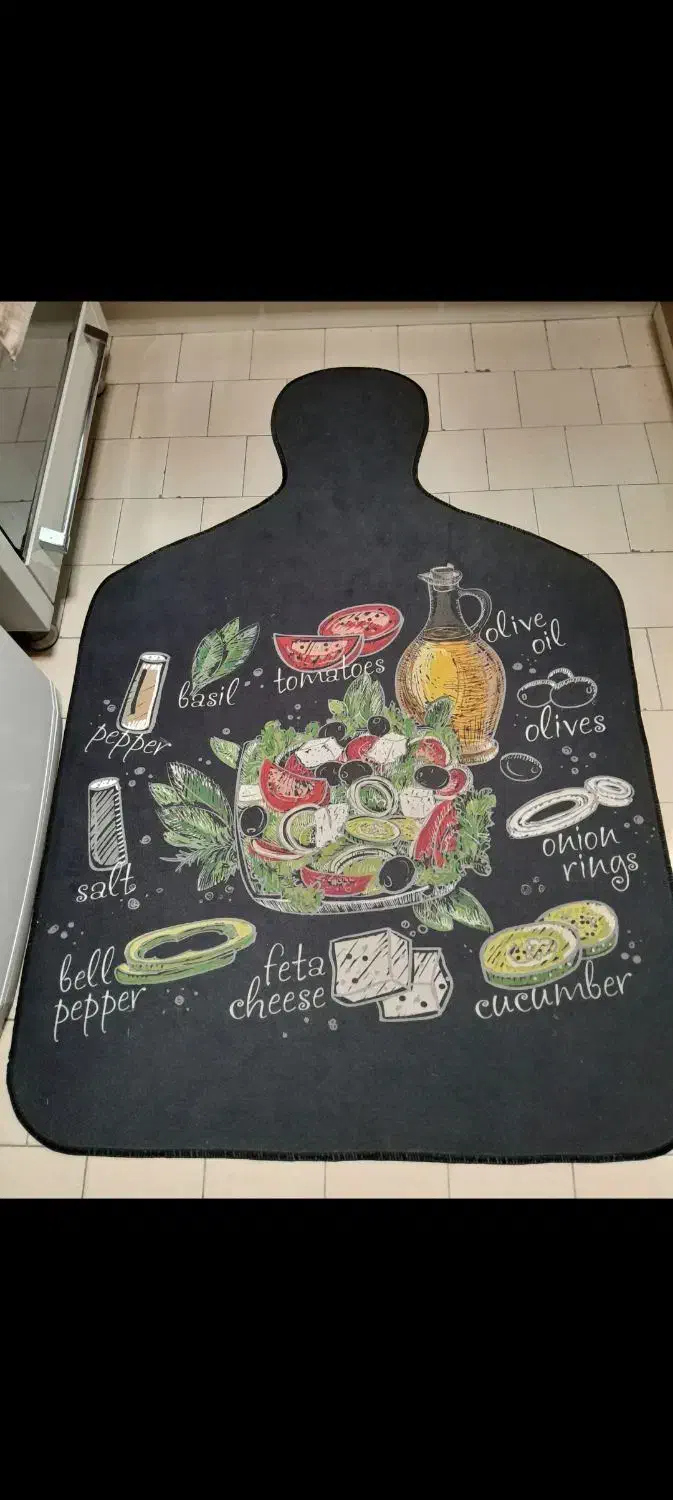 olive
oil
basil
tomatoes
pepper
olives
salt
onion
rings
bell
pepper
feta
cheese
cucumber